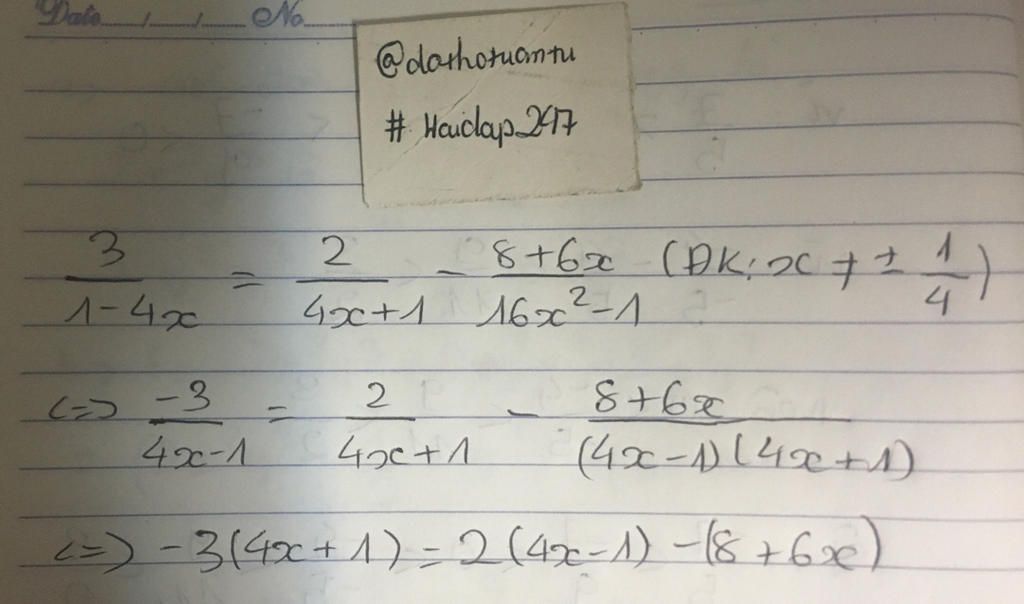 Date / / No
@dathotuantu
# Hoidap247
3/(1-4x) = 2/(4x+1) - (8+6x)/(16x²-1) (ĐK: x ≠ ± 1/4)
<=> -3/(4x-1) = 2/(4x+1) - (8+6x)/((4x-1)(4x+1))
<=> -3(4x+1) = 2(4x-1) - (8+6x)